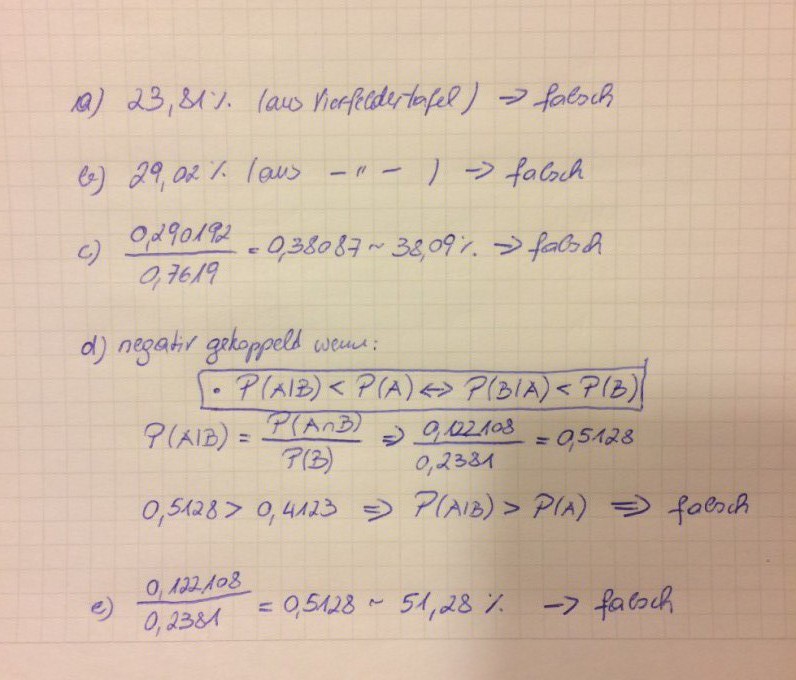 a) 23,81% (aus Vierfeldertafel) => falsch
b) 29,02% (aus -"-) => falsch
c) 0,290192 / 0,7619 = 0,38087 ~ 38,09% => falsch
d) negativ gekoppelt wenn:
• P(A|B) < P(A) <=> P(B|A) < P(B)
P(A|B) = P(A∩B) / P(B) => 0,122108 / 0,2381 = 0,5128
0,5128 > 0,4123 => P(A|B) > P(A) => falsch
e) 0,122108 / 0,2381 = 0,5128 ~ 51,28% -> falsch